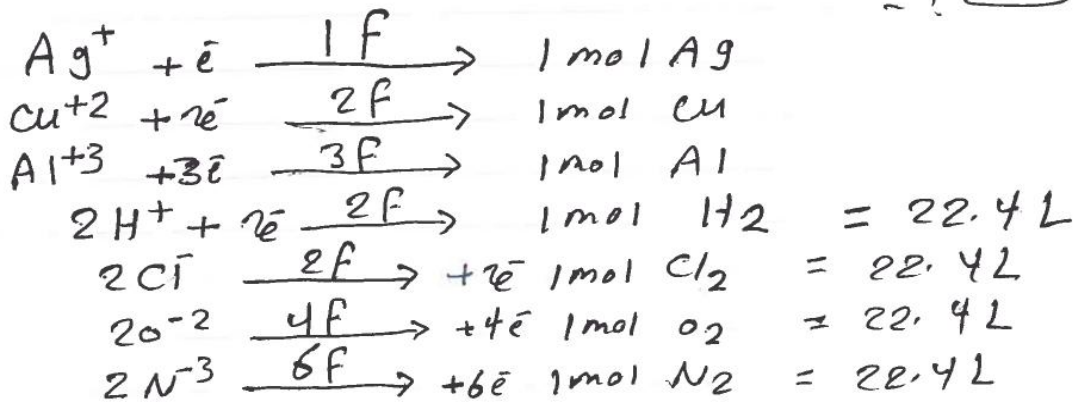 Ag⁺ + ē 1F → 1 mol Ag
Cu⁺² + 2ē 2F → 1 mol Cu
Al⁺³ + 3ē 3F → 1 mol Al
2H⁺ + 2ē 2F → 1 mol H2 = 22.4 L
2Cl⁻ 2F → +2ē 1 mol Cl₂ = 22.4 L
2O⁻² 4F → +4ē 1 mol O₂ = 22.4 L
2N⁻³ 6F → +6ē 1 mol N₂ = 22.4 L